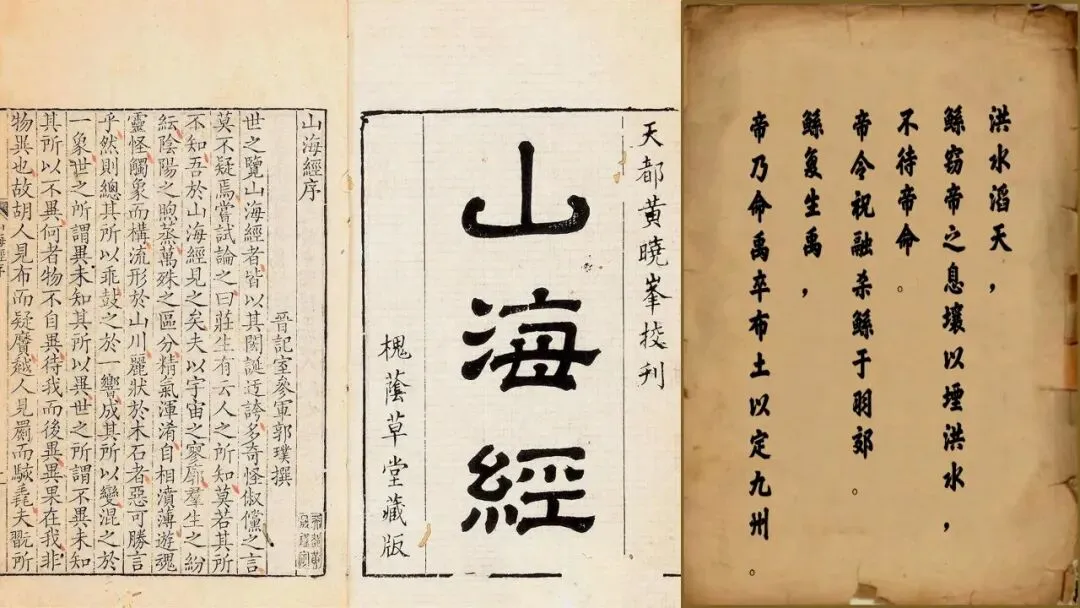 洪水滔天，
鲧窃帝之息壤以堙洪水，
不待帝命。
帝令祝融杀鲧于羽郊。
鲧复生禹，
帝乃命禹卒布土以定九州。
天都黄曉峯挍刊
山海經
槐蔭草堂藏版
山海經序
晉記室參軍郭璞撰
世之覽山海經者皆以其閎誕迂誇多奇怪俶儻之言
莫不疑焉嘗試論之曰莊生有云人之所知莫若其所
不知吾於山海經見之矣夫以宇宙之寥廓羣生之紛
紜陰陽之煦蒸萬殊之區分精氣渾淆自相濆薄遊魂
靈怪觸象而構流形於山川麗狀於木石者惡可勝言
乎然則總其所以乖鼓之於一響成其所以變混之於
一象世之所謂異未知其所以異世之所謂不異未知
其所以不異何者物不自異待我而後異異果在我非
物異也故胡人見布而疑黂越人見罽而駭毳夫翫所